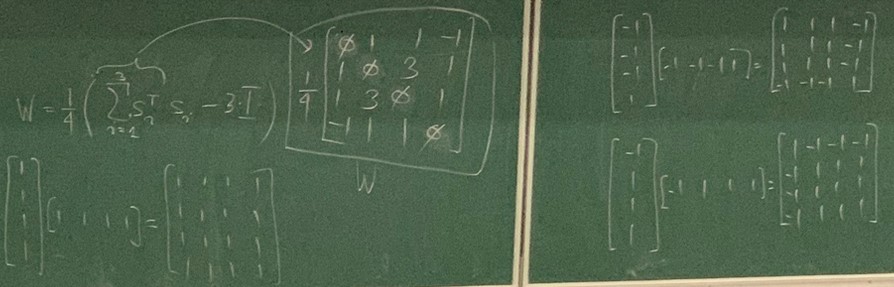 W = 1/4 ( ∑_{i=1}^{3} s_i^T s_i - 3·I )
1/4 [ ∅ 1 1 -1
1 ∅ 3 1
1 3 ∅ 1
-1 1 1 ∅ ]
W
[ 1
1
1
1 ] [ 1 1 1 1 ] = [ 1 1 1 1
1 1 1 1
1 1 1 1
1 1 1 1 ]
[ -1
-1
-1
1 ] [ -1 -1 -1 1 ] = [ 1 1 1 -1
1 1 1 -1
1 1 1 -1
-1 -1 -1 1 ]
[ -1
1
1
1 ] [ -1 1 1 1 ] = [ 1 -1 -1 -1
-1 1 1 1
-1 1 1 1
-1 1 1 1 ]